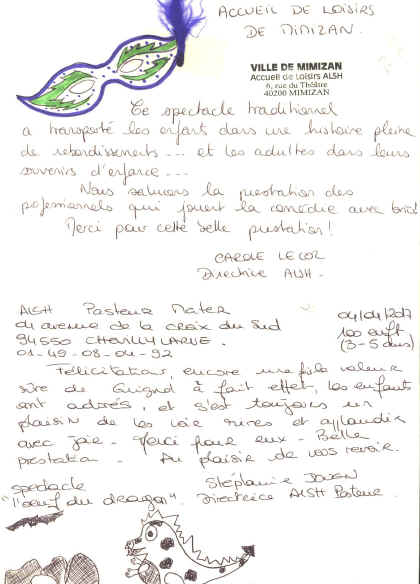 ACCUEIL DE LOISIRS
DE MIMIZAN.
VILLE DE MIMIZAN
Accueil de Loisirs ALSH
6, rue du Théâtre
40200 MIMIZAN
Ce spectacle traditionnel
a transporté les enfants dans une histoire pleine
de rebondissements... et les adultes dans leurs
souvenirs d'enfance...
Nous saluons la prestation des
professionnels qui jouent la comédie avec brio!
Merci pour cette belle prestation!
CAROLE LE COZ
Directrice ALSH.
ALSH Pasteur Mater
04 avenue de la croix du Sud
94550 CHEVILLY LARUE.
01-49-08-04-92
04/04/2017
100 enft
(3-5 ans)
Félicitations, encore une fois valeur
sûre de Guignol à fait effet, les enfants
ont adorés, et s'est toujours un
plaisir de les voir rires et applaudir
avec joie. Merci pour eux. Belle
prestation. Au plaisir de vous revoir.
spectacle
"l'oeuf du dragon".
Stéphanie
Directrice ALSH Pasteur.